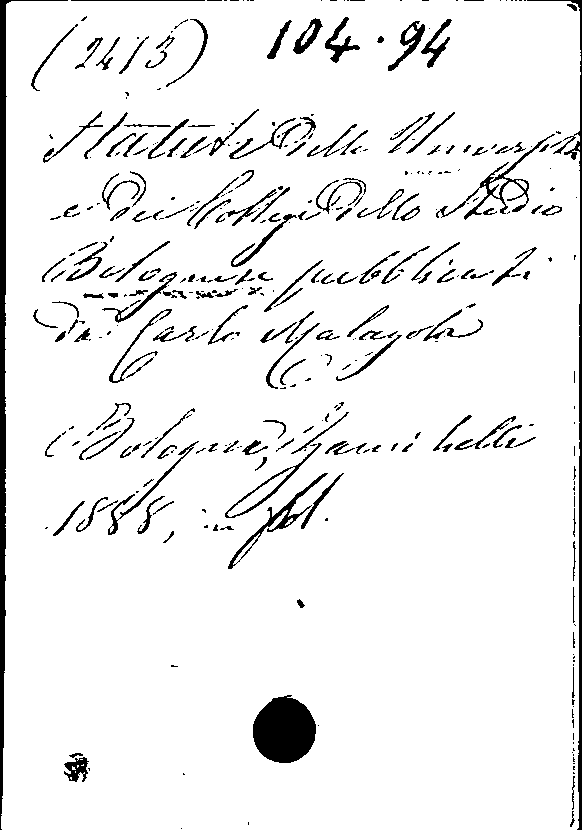 (2413) 104.94
Statuti delle Università
e dei Collegi dello Studio
Bolognese pubblicati
da Carlo Malagola
Bologna, Zanichelli
1888, in fol.